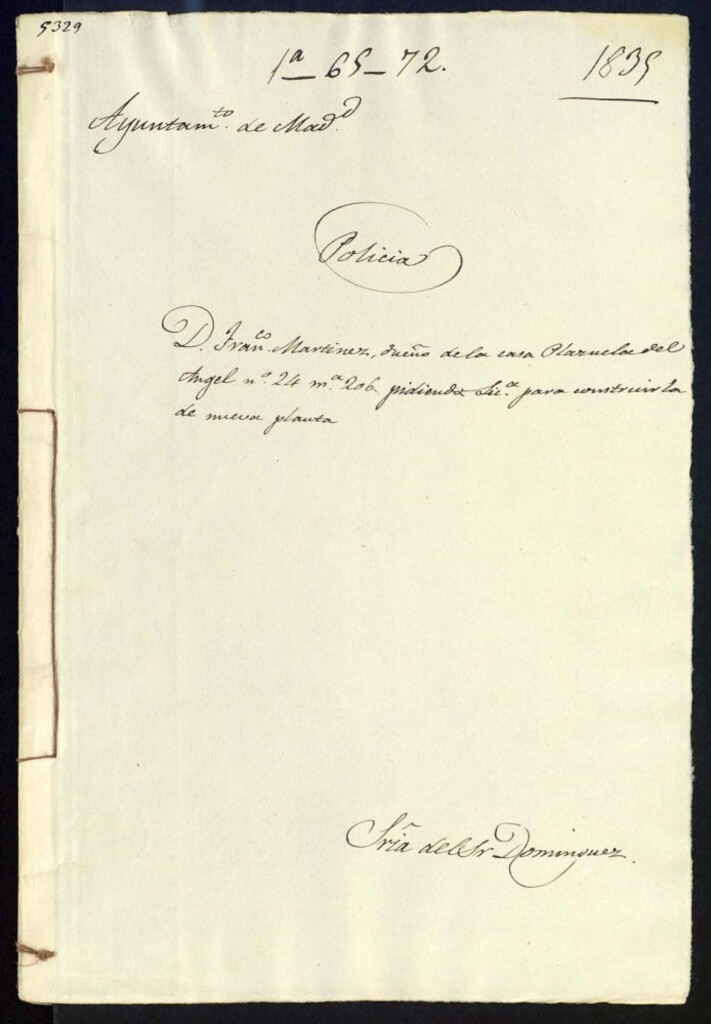 5329
1ª–65–72.
1835
Ayuntamto. de Madd.
Policia
D. Franco. Martinez, dueño de la casa Plazuela del
Angel nº. 24 mª 206 pidiendo Lica. para construirla
de nueva planta
Sría del Sr Dominguez.